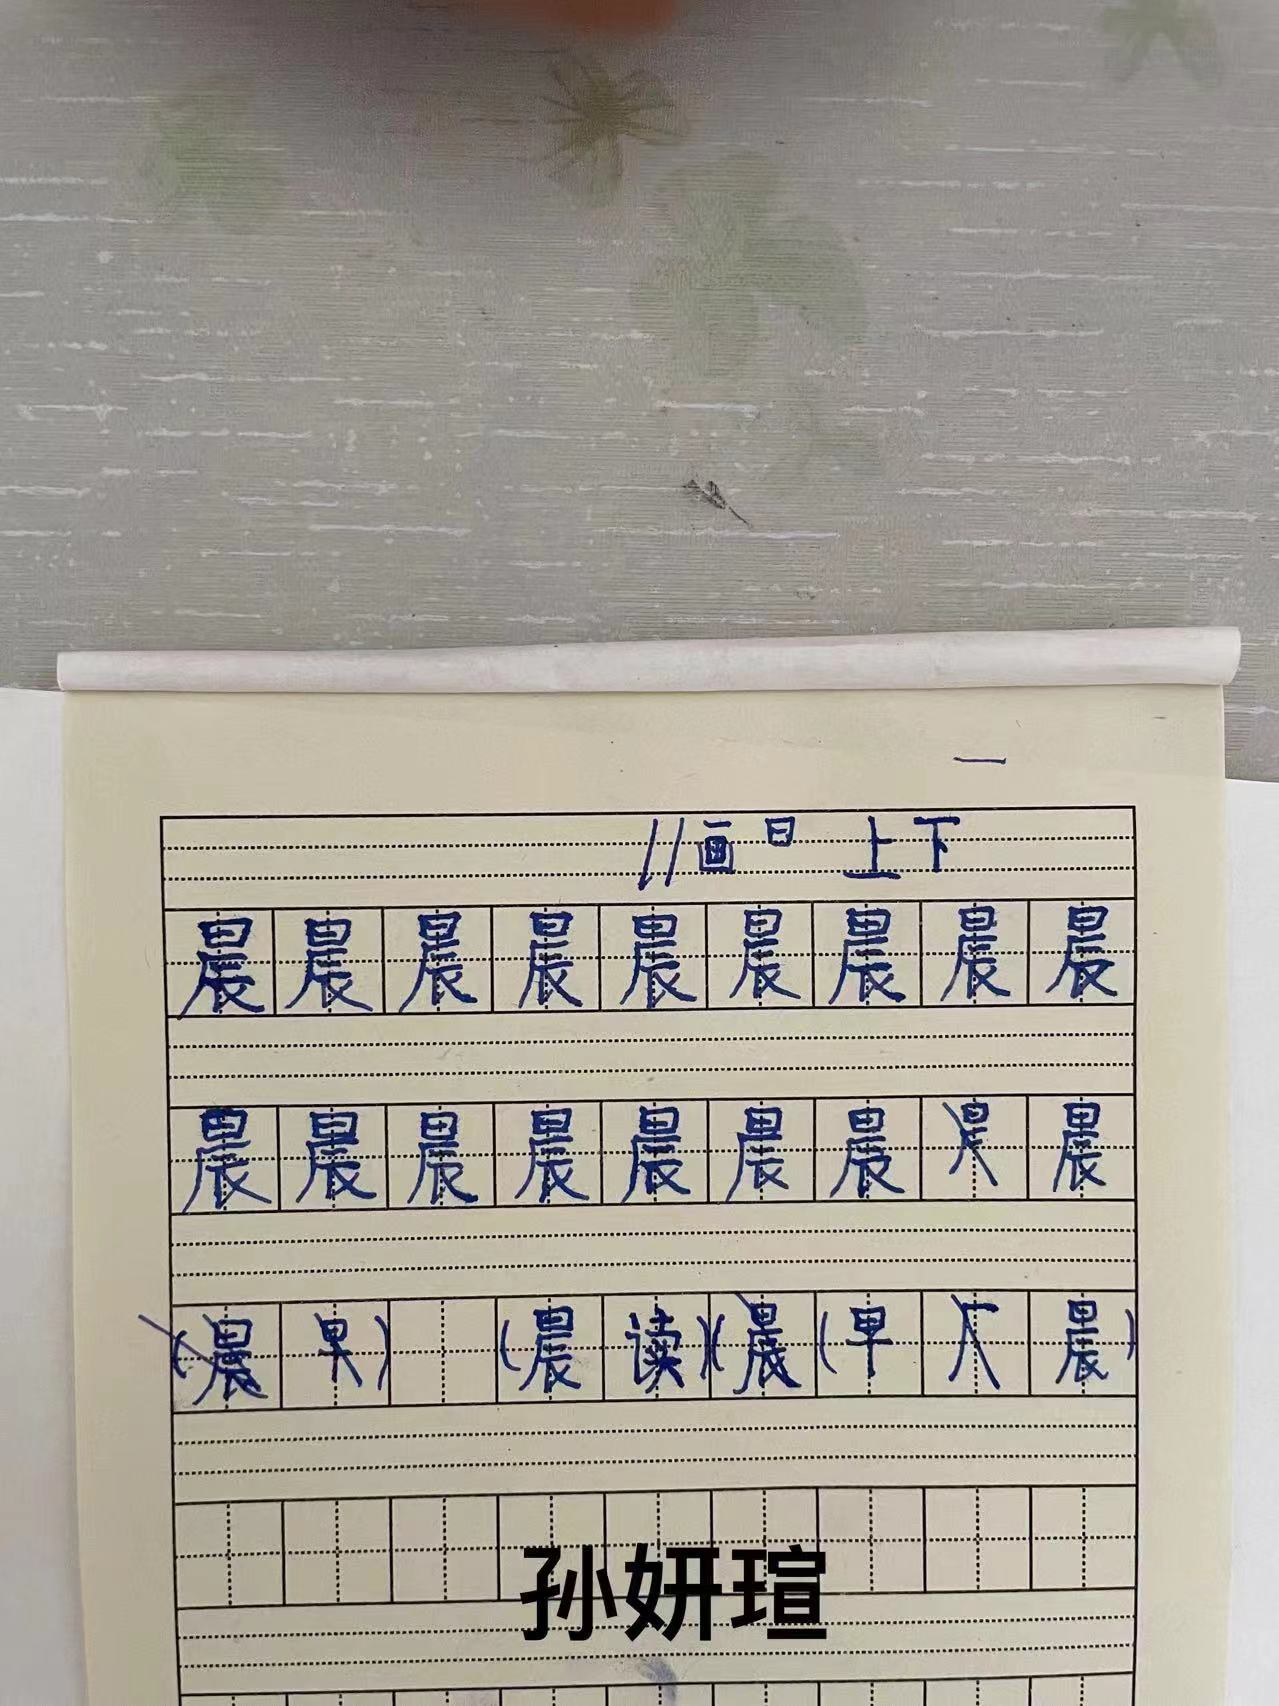 11画 日 上下
晨晨晨晨晨晨晨晨晨
晨晨晨晨晨晨晨晨
(晨读)(早晨)
孙妍瑄